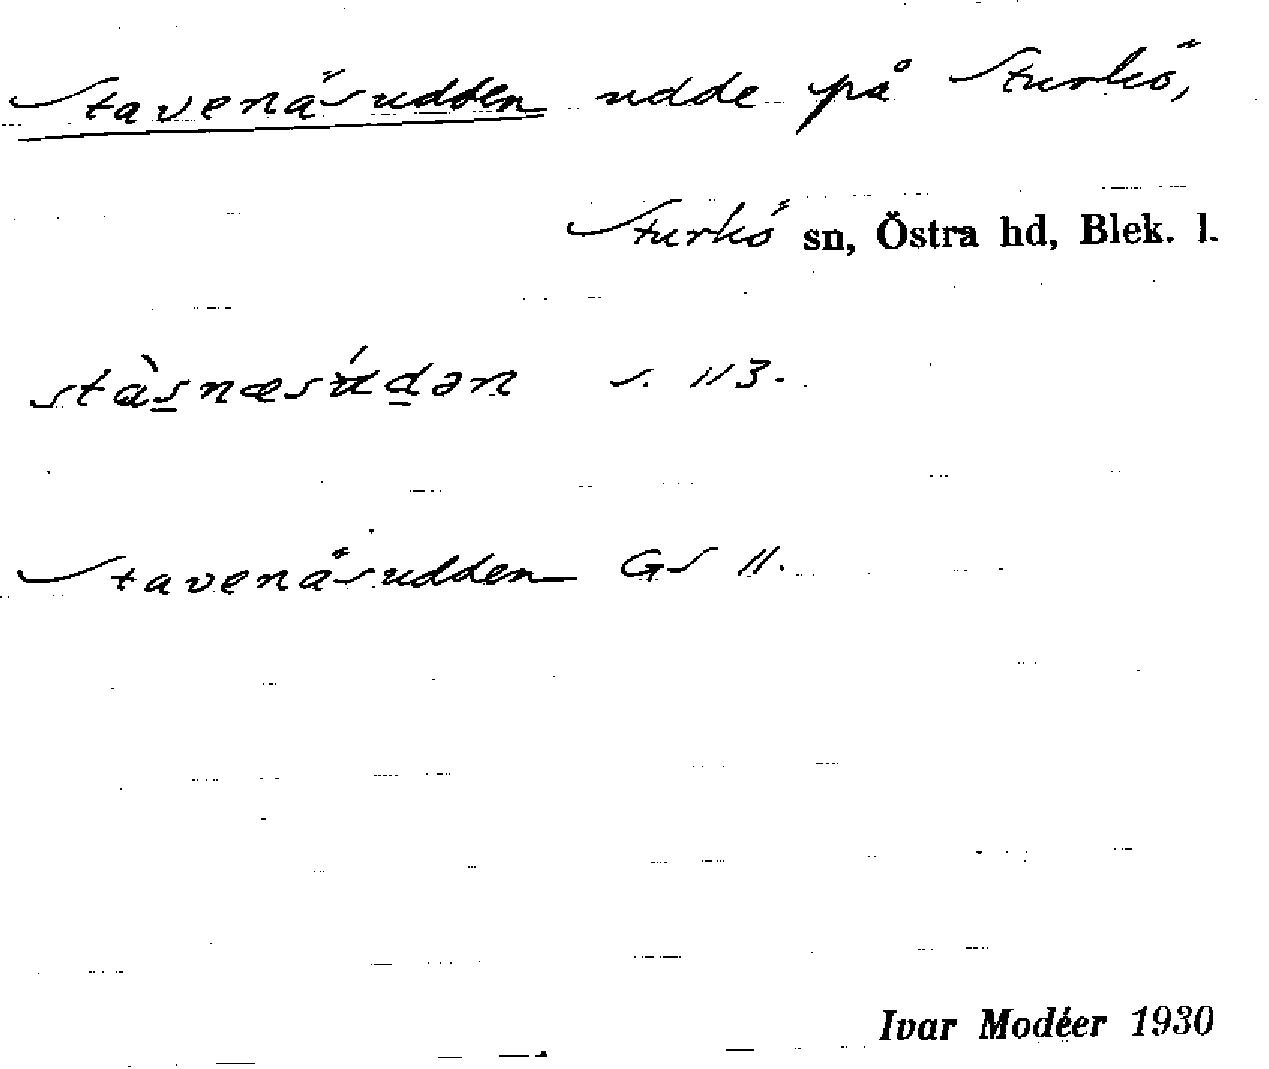 Stavenäsudden udde på Sturkö,
Sturkö sn, Östra hd, Blek. l.
stàs̠næsúd̠ən s. 113.
Stavenäsudden GS 11.
Ivar Modéer 1930